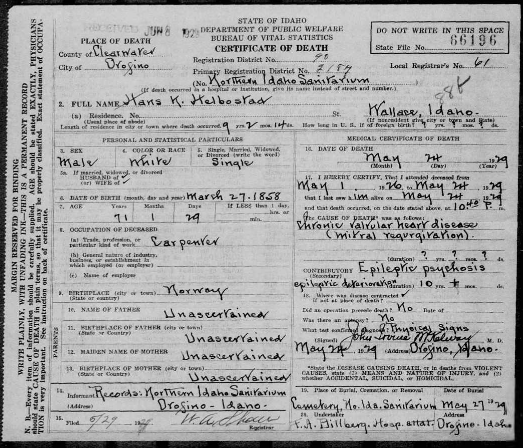 STATE OF IDAHO
DEPARTMENT OF PUBLIC WELFARE
BUREAU OF VITAL STATISTICS
CERTIFICATE OF DEATH
JUN 8 1929
DO NOT WRITE IN THIS SPACE
State File No. 66196
PLACE OF DEATH
County of Clearwater
City of Orofino
Registration District No.
Primary Registration District No.
Local Registrar's No. 61
(No. Northern Idaho Sanitarium
(If death occurred in a hospital or institution, give its name instead of street and number.)
2. FULL NAME Hans K. Helbostad
(a) Residence. No. Wallace, Idaho.
(Usual place of abode) (If nonresident give city or town and State)
Length of residence in city or town where death occurred 9 yrs. 2 mos. 14 ds. How long in U. S. if of foreign birth? ? yrs. ? mos. ? ds.
PERSONAL AND STATISTICAL PARTICULARS
3. SEX Male
4. COLOR OR RACE White
5. Single, Married, Widowed, or Divorced (write the word) Single
5a. If married, widowed, or divorced
HUSBAND of
(or) WIFE of
6. DATE OF BIRTH (month, day and year) March 27. 1858
7. AGE Years 71 Months 1 Days 29 If LESS than 1 day, hrs. or min.
8. OCCUPATION OF DECEASED
(a) Trade, profession, or particular kind of work Carpenter
(b) General nature of industry, business, or establishment in which employed (or employer)
(c) Name of employer
9. BIRTHPLACE (city or town) Norway
(State or country)
PARENTS
10. NAME OF FATHER Unascertained
11. BIRTHPLACE OF FATHER (city or town)
(State or Country) Unascertained
12. MAIDEN NAME OF MOTHER Unascertained
13. BIRTHPLACE OF MOTHER (city or town)
Unascertained
14. Informant Records: Northern Idaho Sanitarium
(Address) Orofino - Idaho.
15. Filed 5/29 1929
Registrar
MEDICAL CERTIFICATE OF DEATH
16. DATE OF DEATH
May 24 1929
17. I HEREBY CERTIFY, That I attended deceased from
May 1 1926, to May 24, 1929
that I last saw him alive on May 24, 1929
and that death occurred, on the date stated above, at 10:40 P. m.
The CAUSE OF DEATH was as follows:
Chronic valvular heart disease
(mitral regurgitation).
(duration) ? yrs. ? mos. ? ds.
CONTRIBUTORY Epileptic psychosis
(Secondary)
epileptic deterioration (duration) 10 yrs. + mos. ds.
18. Where was disease contracted
if not at place of death?
Did an operation precede death? No Date of
Was there an autopsy? No
What test confirmed diagnosis? Physical signs
(Signed) M. D.
May 24, 1929 (Address) Orofino, Idaho.
State the DISEASE CAUSING DEATH, or in deaths from VIOLENT CAUSES, state (1) MEANS AND NATURE OF INJURY, and (2) whether ACCIDENTAL, SUICIDAL, or HOMICIDAL.
19. Place of Burial, Cremation, or Removal Date of Burial
Cemetery, No. Ida. Sanitarium May 27 1929
20. Undertaker (Address)
Hosp. attat. Orofino
MARGIN RESERVED FOR BINDING
WRITE PLAINLY, WITH UNFADING INK—THIS IS A PERMANENT RECORD
N. B.—Every item of information should be carefully supplied. AGE should be stated EXACTLY. PHYSICIANS should state CAUSE OF DEATH in plain terms, so that it may be properly classified. Exact statement of OCCUPATION is very important. See instructions on back of certificate.